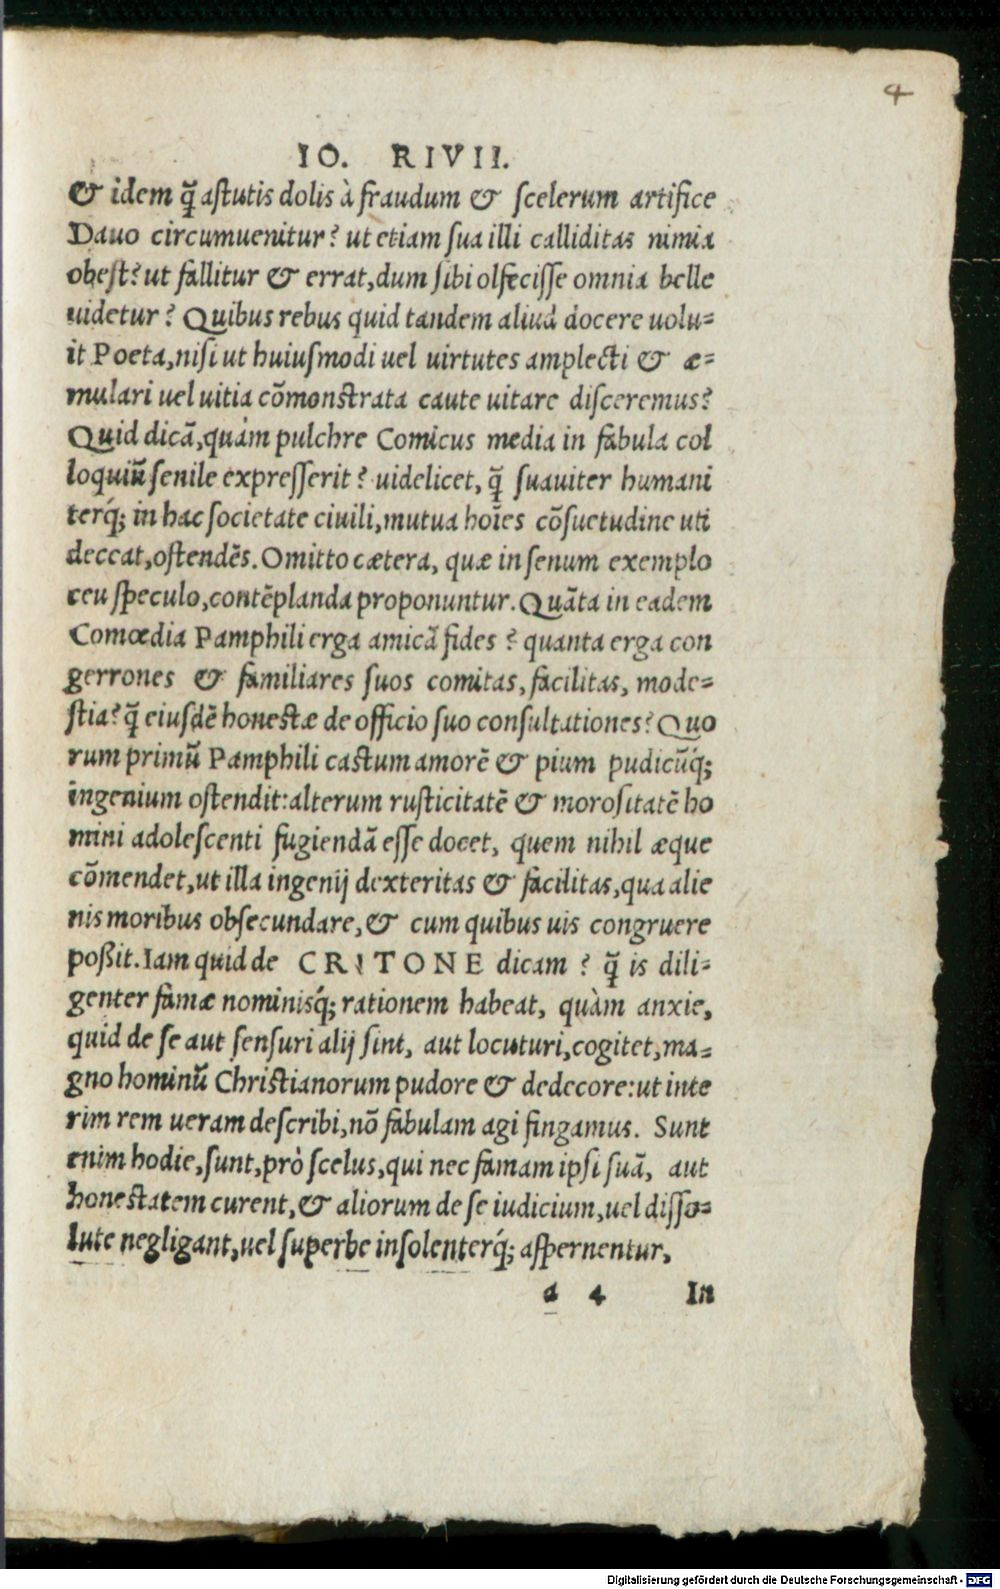 4
IO. RIVII.
& idem q̃ astutis dolis à fraudum & scelerum artifice
Dauo circumuenitur? ut etiam sua illi calliditas nimia
obest? ut fallitur & errat, dum sibi olfecisse omnia belle
uidetur? Quibus rebus quid tandem aliud docere uolu=
it Poeta, nisi ut huiusmodi uel uirtutes amplecti & æ=
mulari uel uitia cõmonstrata caute uitare disceremus?
Quid dicã, quàm pulchre Comicus media in fabula col
loquiũ senile expresserit? uidelicet, q̃ suauiter humani
terq́; in hac societate ciuili, mutua hoĩes cõsuetudine uti
deceat, ostendẽs. Omitto cætera, quæ in senum exemplo
ceu speculo, contẽplanda proponuntur. Quãta in eadem
Comœdia Pamphili erga amicã fides? quanta erga con
gerrones & familiares suos comitas, facilitas, mode=
stia? q̃ eiusdẽ honestæ de officio suo consultationes? Quo
rum primũ Pamphili castum amorẽ & pium pudicũq́;
ingenium ostendit: alterum rusticitatẽ & morositatẽ ho
mini adolescenti fugiendã esse docet, quem nihil æque
cõmendet, ut illa ingenij dexteritas & facilitas, qua alie
nis moribus obsecundare, & cum quibus uis congruere
poßit. Iam quid de CRITONE dicam? q̃ is dili=
genter famæ nominisq́; rationem habeat, quàm anxie,
quid de se aut sensuri alij sint, aut locuturi, cogitet, ma=
gno hominũ Christianorum pudore & dedecore: ut inte
rim rem ueram describi, nõ fabulam agi fingamus. Sunt
enim hodie, sunt, prò scelus, qui nec famam ipsi suã, aut
honestatem curent, & aliorum de se iudicium, uel disso=
lute negligant, uel superbe insolenterq́; aspernentur,
a 4 In
Digitalisierung gefördert durch die Deutsche Forschungsgemeinschaft - DFG